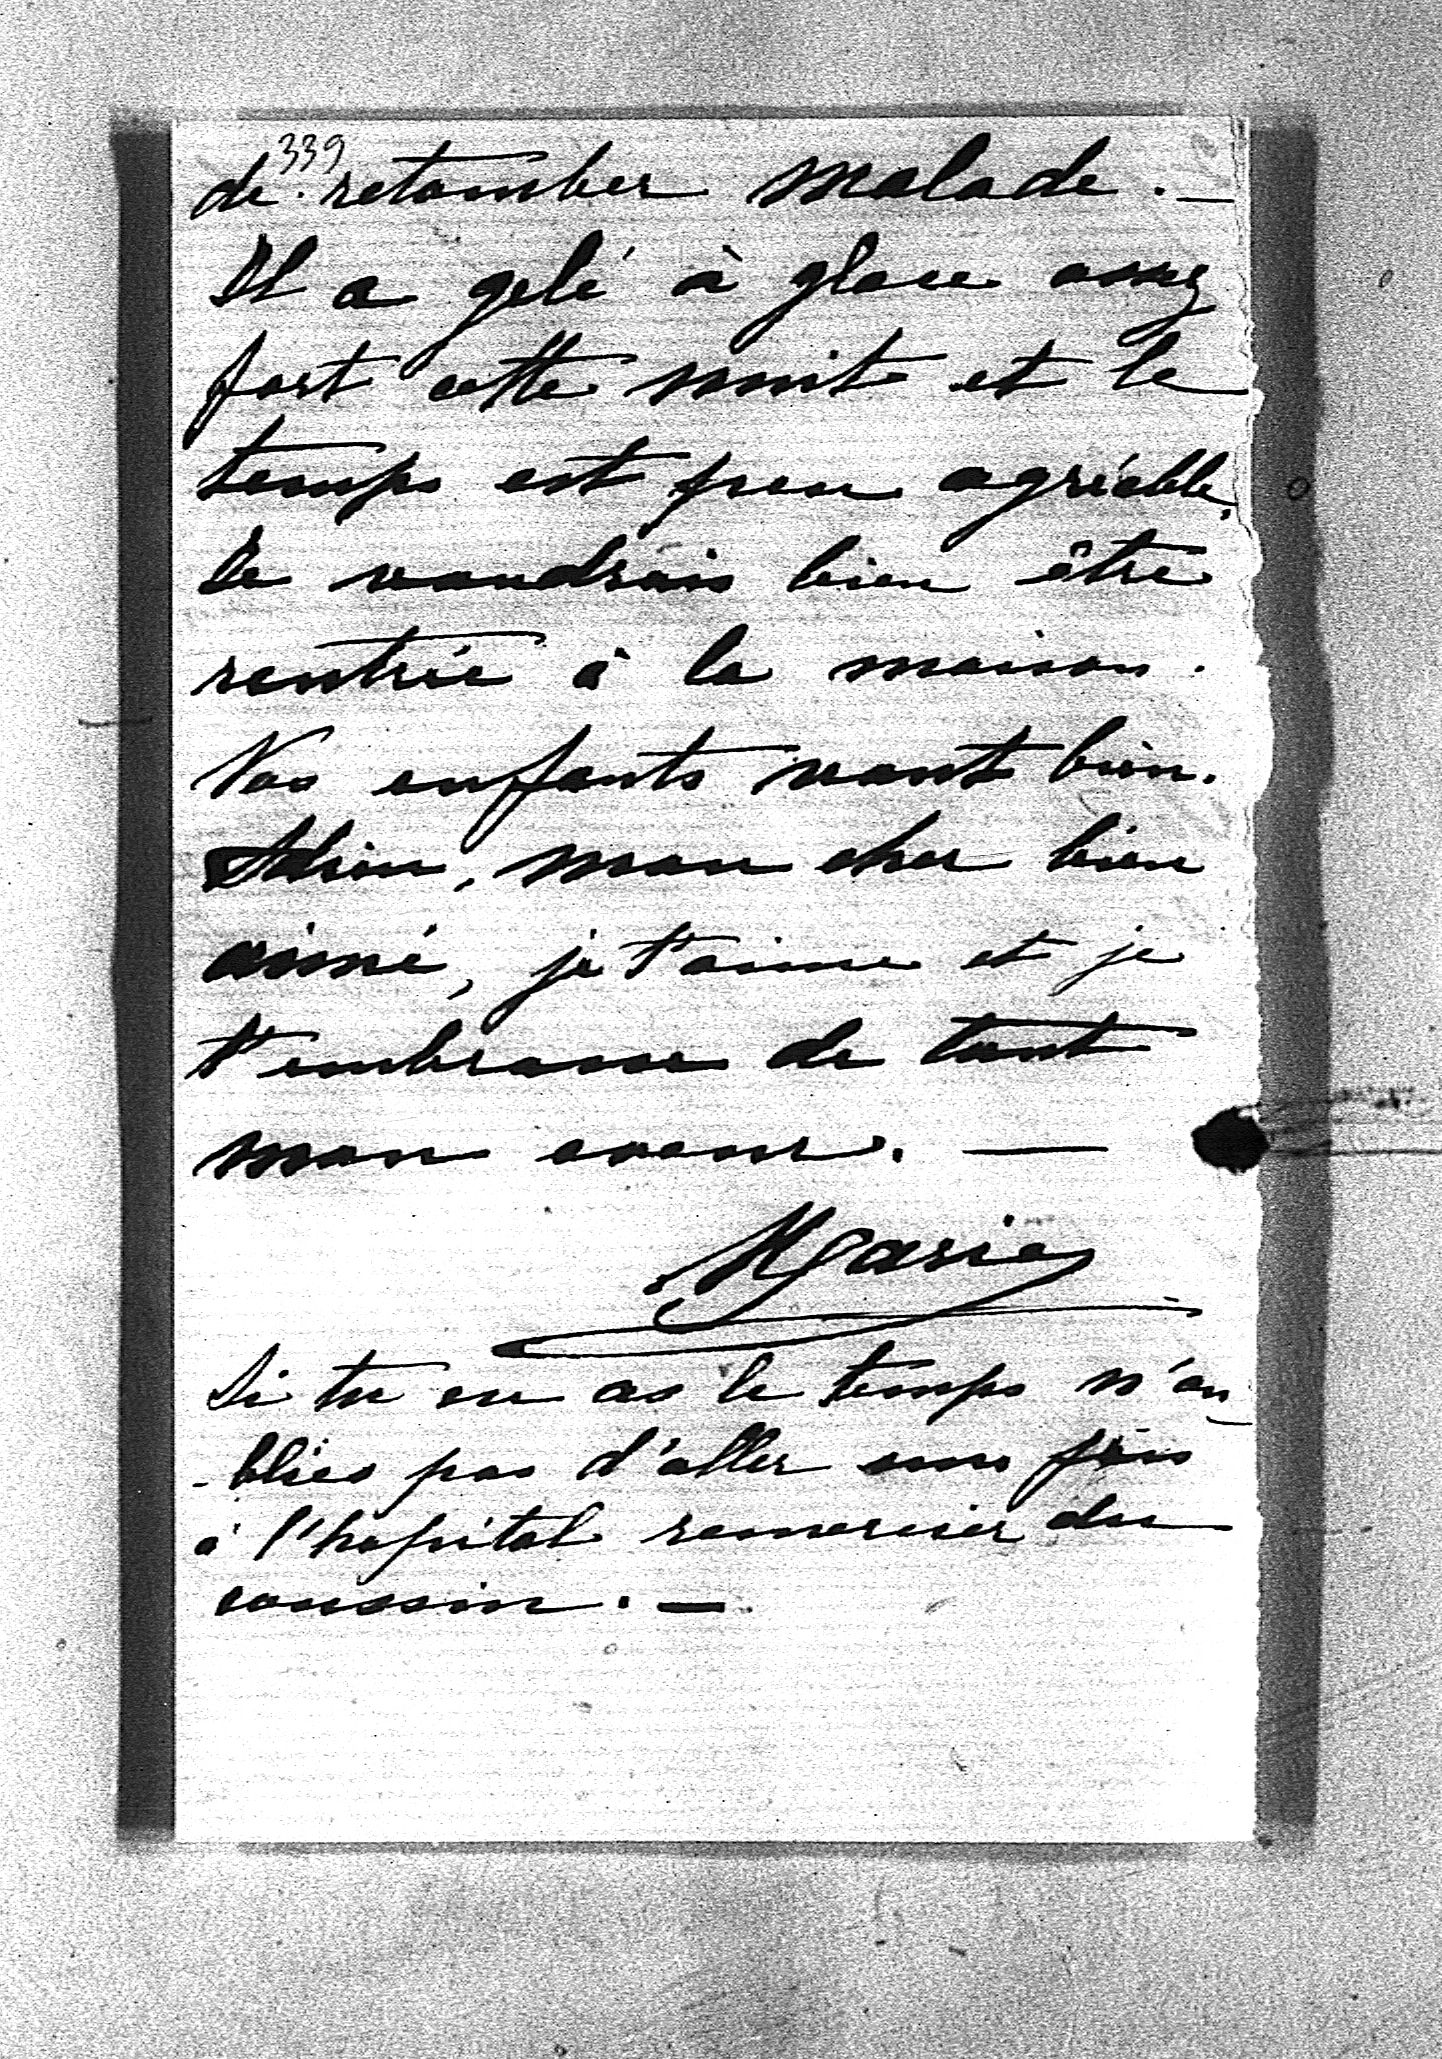 339
de retomber malade. —
Il a gelé à glace assez
fort cette nuit et le
temps est peu agréable.
Je voudrais bien être
rentrée à la maison.
Nos enfants vont bien.
Adieu, mon cher bien
aimé, je t'aime et je
t'embrasse de tout
mon coeur. —
Marie
Si tu en as le temps n'ou
-blies pas d'aller une fois
à l'hopital remercier du
coussin. —